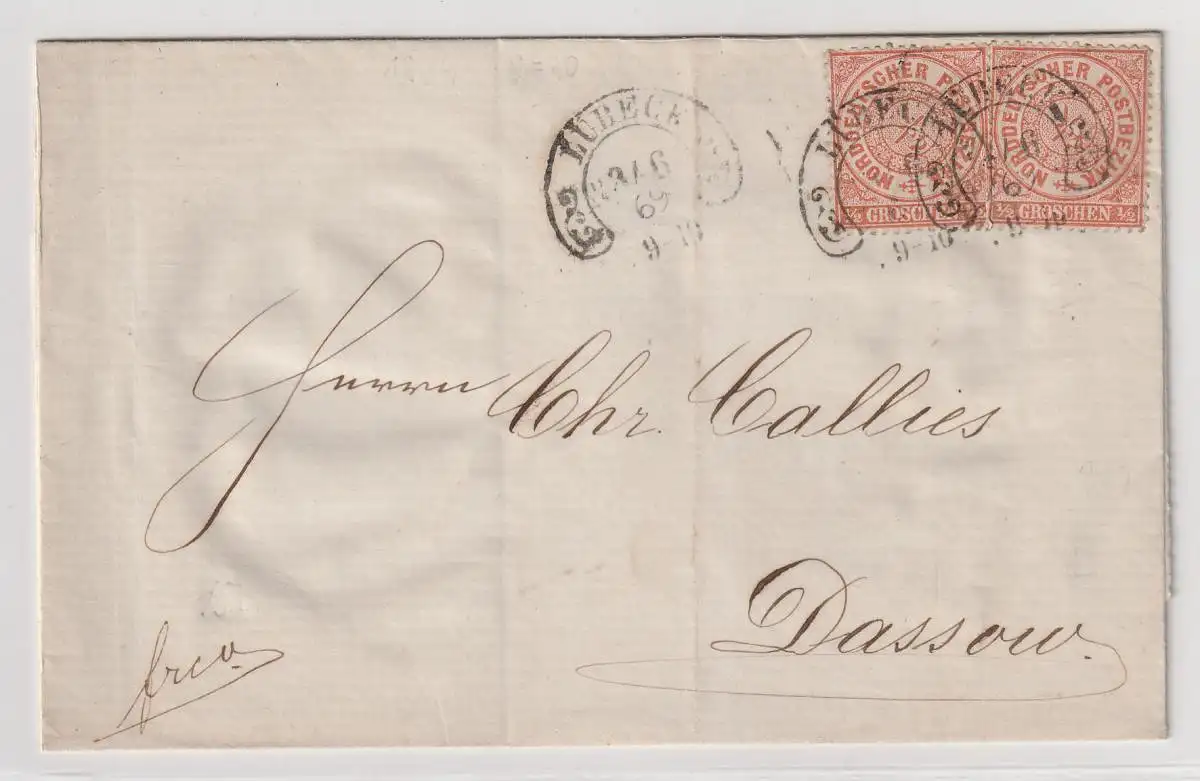 LÜBECK
23/6
69
9-10
NORDDEUTSCHER POSTBEZIRK
½ GROSCHEN ½
NORDDEUTSCHER POSTBEZIRK
½ GROSCHEN ½
LÜBECK
9-10
LÜBECK
9-10
Herrn Chr. Callies
Dassow.
frco.